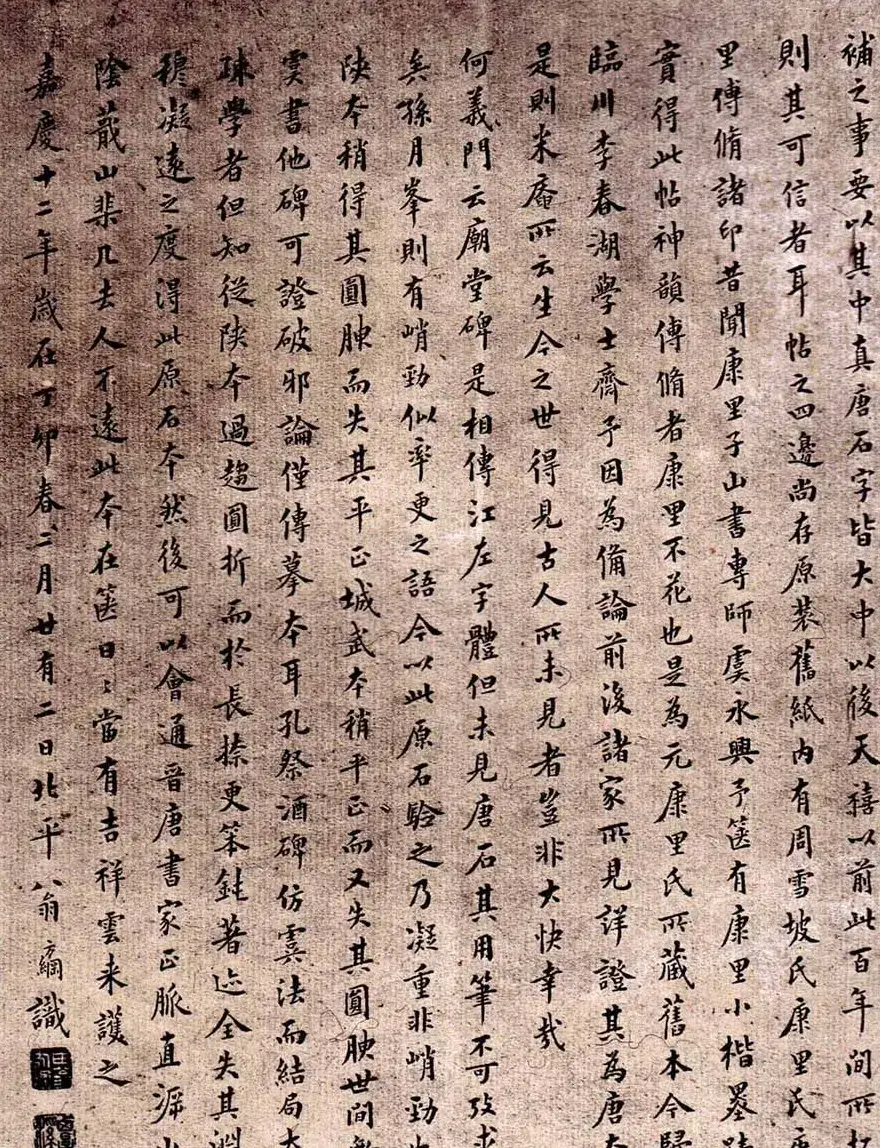 補之事要以其中真唐石字皆大中以後天禧以前此百年間所拓
則其可信者耳帖之四邊尚存原裝舊紙內有周雪坡氏康里氏
里傅脩諸印昔聞康里子山書專師虞永興予篋有康里小楷墨跡
實得此帖神韻傅脩者康里不花也是為元康里氏所藏舊本今歸
臨川李春湖學士齋予因為備論前後諸家所見詳證其為唐本
是則米庵所云生今之世得見古人所未見者豈非大快幸哉
何義門云廟堂碑是相傳江左字體但未見唐石其用筆不可攷求
矣孫月峯則有峭勁似率更之語今以此原石驗之乃凝重非峭勁也
陝本稍得其圓腴而失其平正城武本稍平正而又失其圓腴世間無
虞書他碑可證破邪論僅傳摹本耳孔祭酒碑仿虞法而結局太
疎學者但知從陝本過趨圓折而於長捺更笨鈍著迹全失其淵
穆凝遠之度得此原石本然後可以會通晉唐書家正脈直泝山
陰蕺山棐几去人不遠此本在篋日〻當有吉祥雲来護之
嘉慶十二年歲在丁卯春二月廿有二日北平八翁方綱識